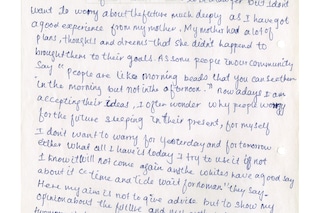 but I don't
want to worry about the future much deeply as I have got
a good experience from my mother. My mother had a lot of
plans, thoughts and dreems that she didn't happen to
brought them to their goals. As some people in our community
Say " people are like morning beads that you can see them
in the morning but not in the afternoon." now adays I am
accepting their ideas, I often wonder why people worry
for the future sleeping in their present, for myself
I don't want to warry for yesterday and for tomorrow
either what all I have is today I try to use it if not
I know it will not come again as the whites have a good say
about it " time and tide wait for no man" they say.
Here my aim is not to give advite but to show my
opinion about the future and